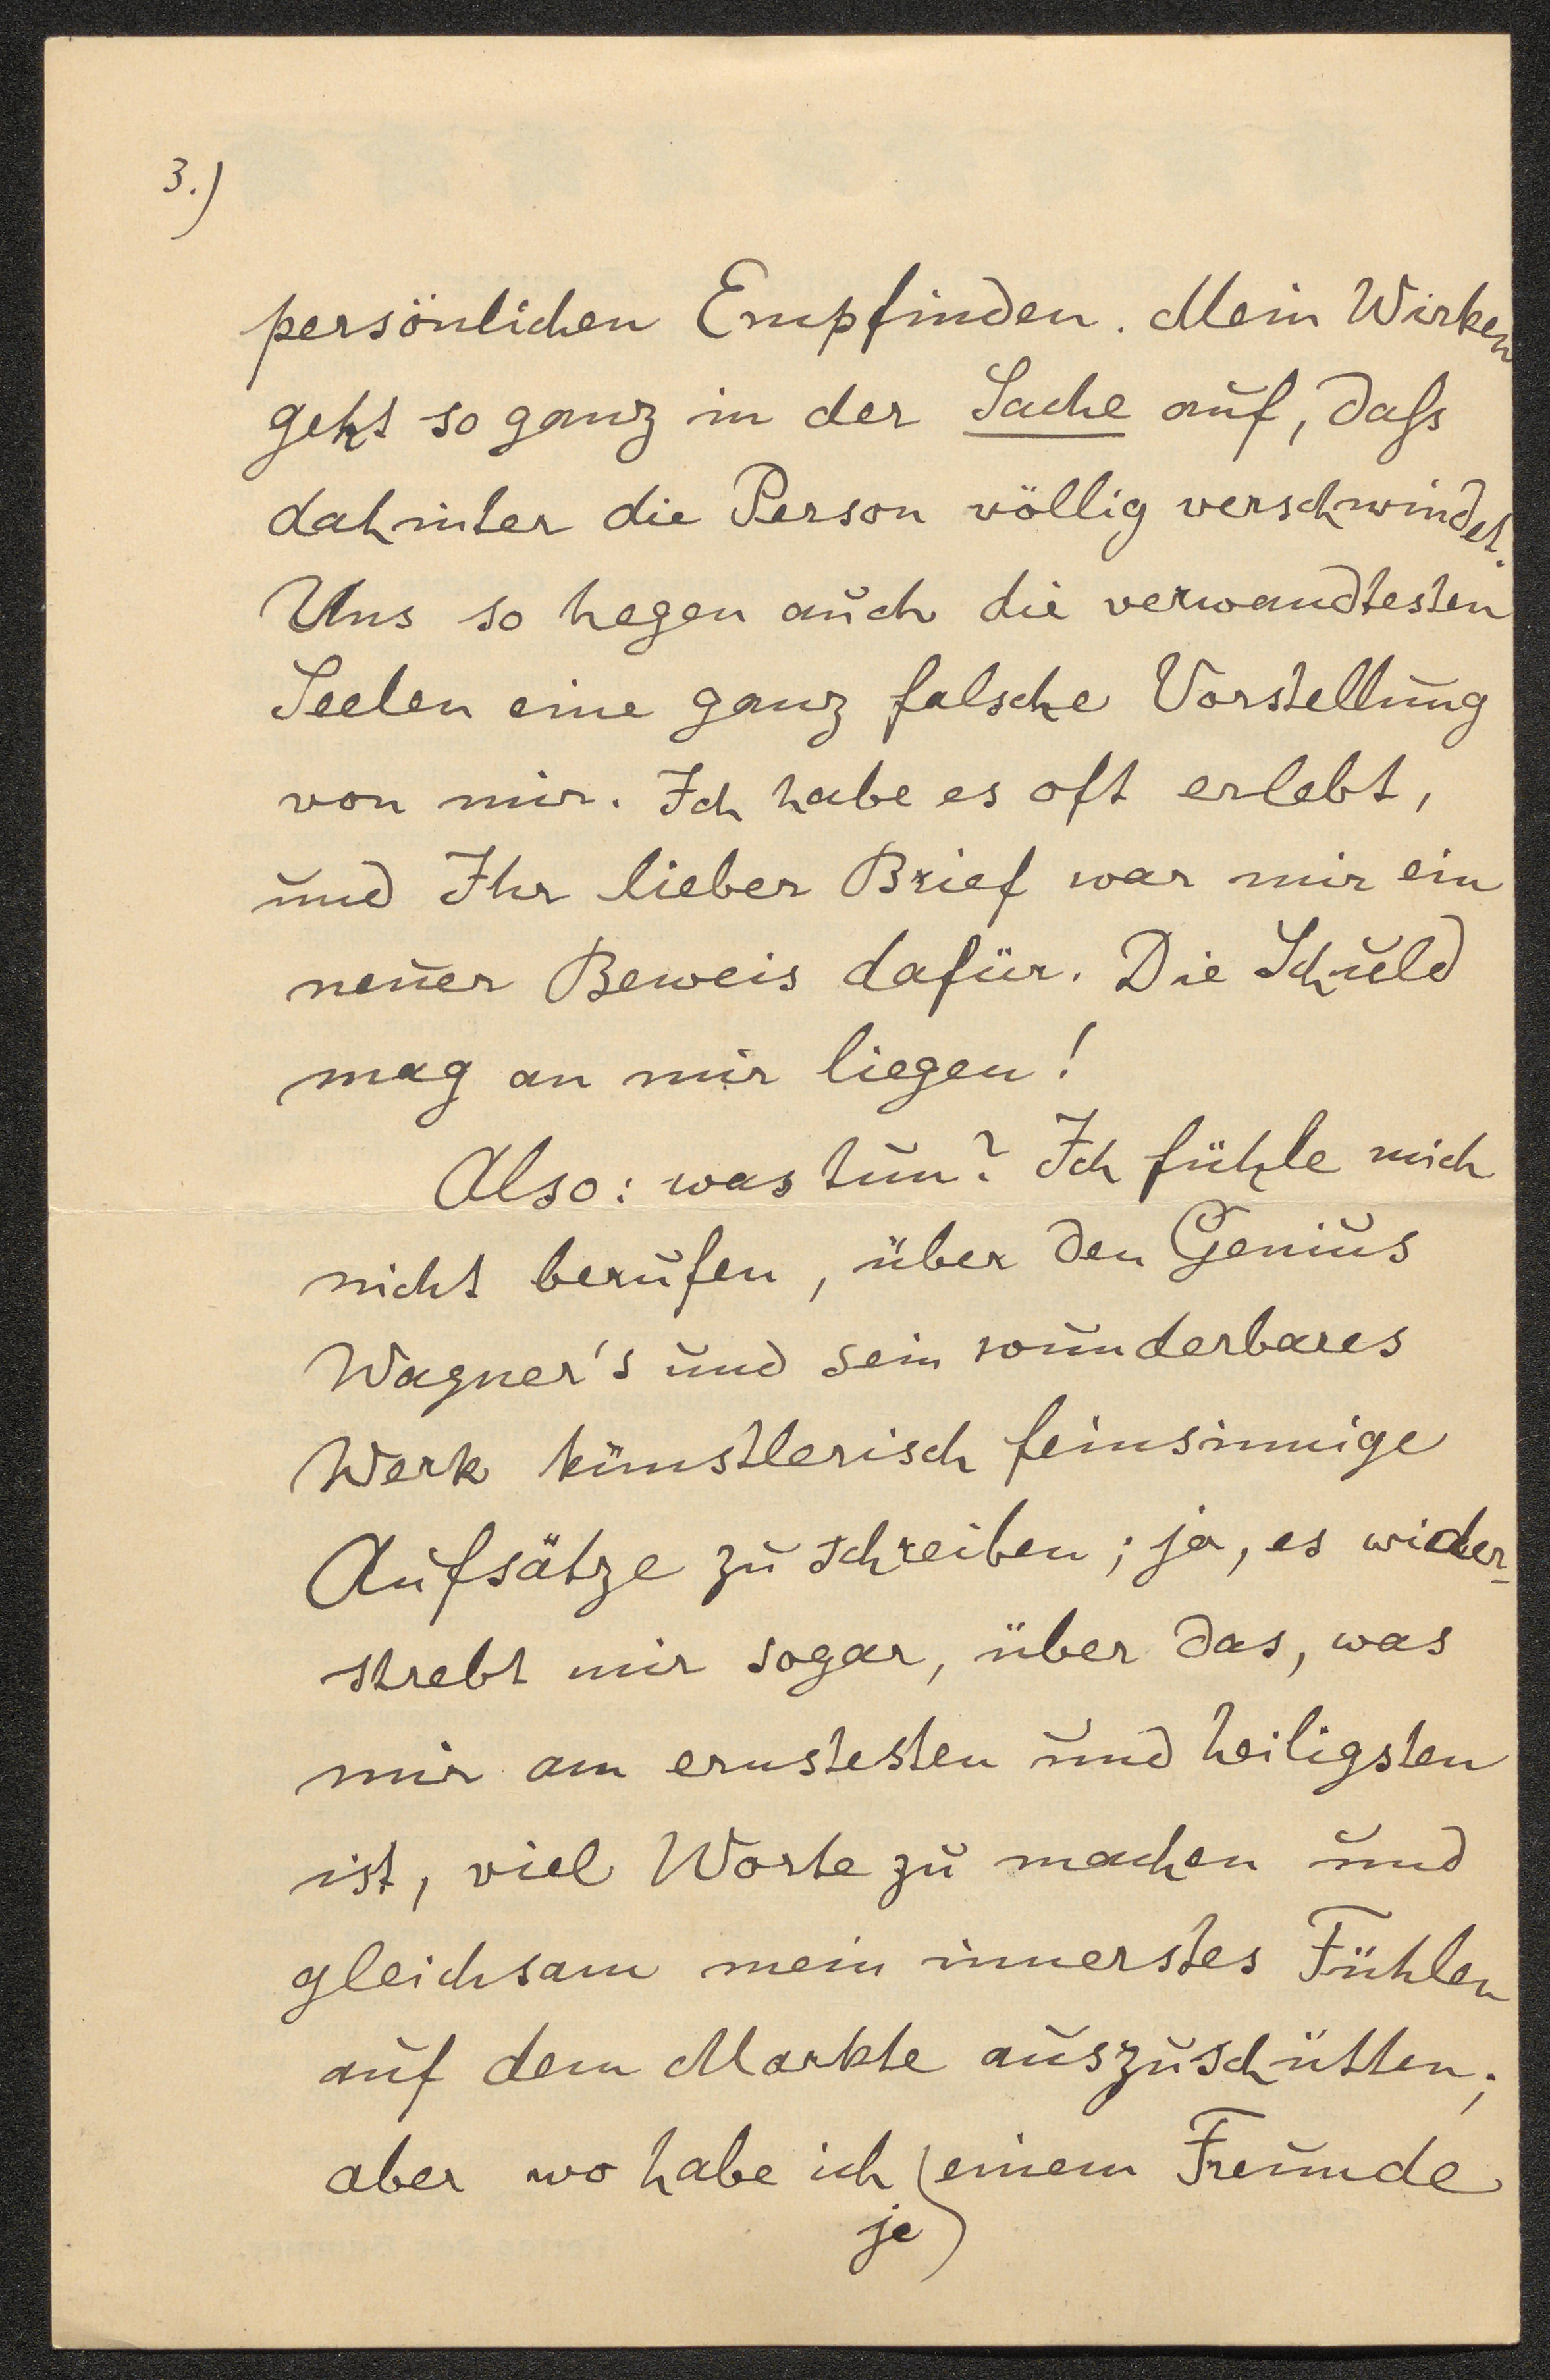 3.)
persönlichen Empfinden. Mein Wirken
geht so ganz in der Sache auf, daſs
dahinter die Person völlig verschwindet.
Uns so hegen auch die verwandtesten
Seelen eine ganz falsche Vorstellung
von mir. Ich habe es oft erlebt,
und Ihr lieber Brief war mir ein
neuer Beweis dafür. Die Schuld
mag an mir liegen!
Also: was tun? Ich fühle mich
nicht berufen, über den Genius
Wagner's und sein wunderbares
Werk künstlerisch feinsinnige
Aufsätze zu schreiben; ja, es wider-
strebt mir sogar, über das, was
mir am ernstesten und heiligsten
ist, viel Worte zu machen und
gleichsam mein innerstes Fühlen
auf dem Markte auszuschütten;
aber wo habe ich einem Freunde
je